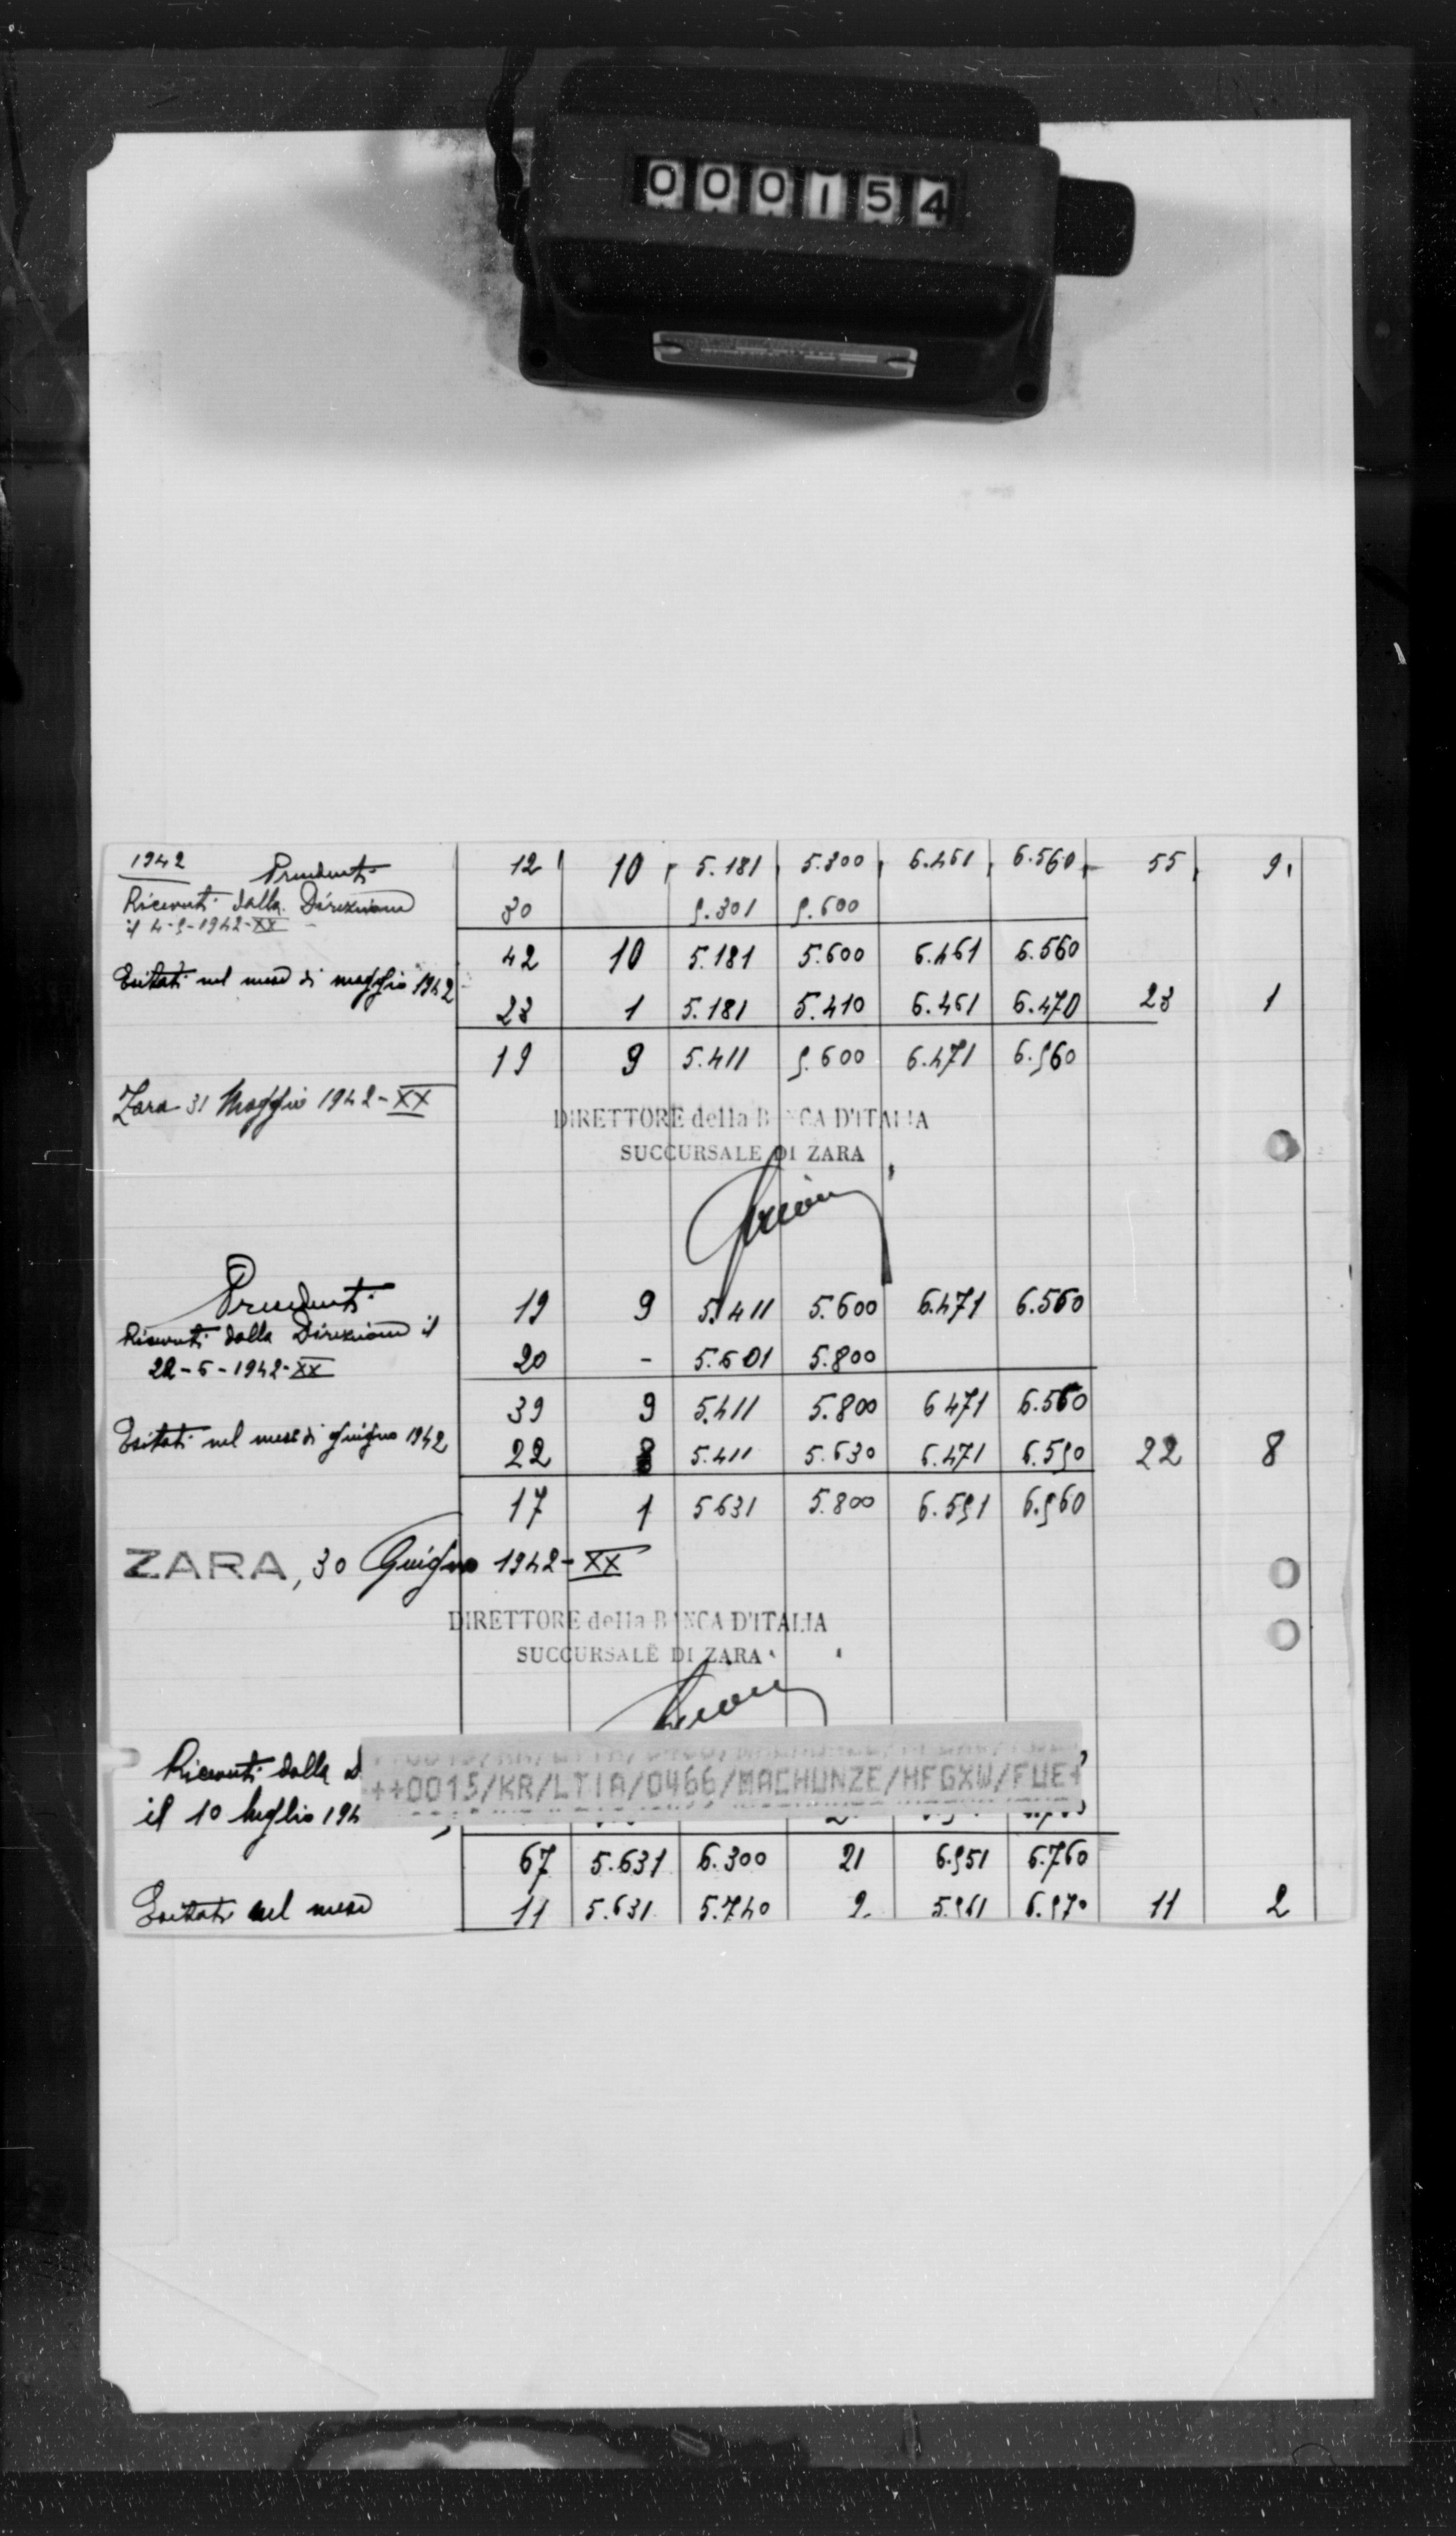 000154
1942 Precedenti 12 10 5.181 5.300 6.461 6.560 55 9
Ricevuti dalla Direzione 30 5.301 5.600
il 4-5-1942-XX
42 10 5.181 5.600 6.461 6.560
Esitati nel mese di maggio 1942 23 1 5.181 5.410 6.461 6.470 23 1
19 9 5.411 5.600 6.471 6.560
Zara 31 Maggio 1942-XX
DIRETTORE della BANCA D'ITALIA
SUCCURSALE DI ZARA
Precedenti 19 9 5.411 5.600 6.471 6.560
Ricevuti dalla Direzione il
22-6-1942-XX 20 - 5.601 5.800
39 9 5.411 5.800 6471 6.560
Esitati nel mese di giugno 1942 22 8 5.411 5.630 6.471 6.550 22 8
17 1 5631 5.800 6.551 6.560
ZARA, 30 Giugno 1942-XX
DIRETTORE della BANCA D'ITALIA
SUCCURSALE DI ZARA
Ricevuti dalla
++0015/KR/LTIA/0466/MACHUNZE/HFGXW/FUE+
il 10 luglio 194
67 5.631 6.300 21 6.551 6.760
Esitati nel mese 11 5.631 5.740 2 5.561 6.570 11 2